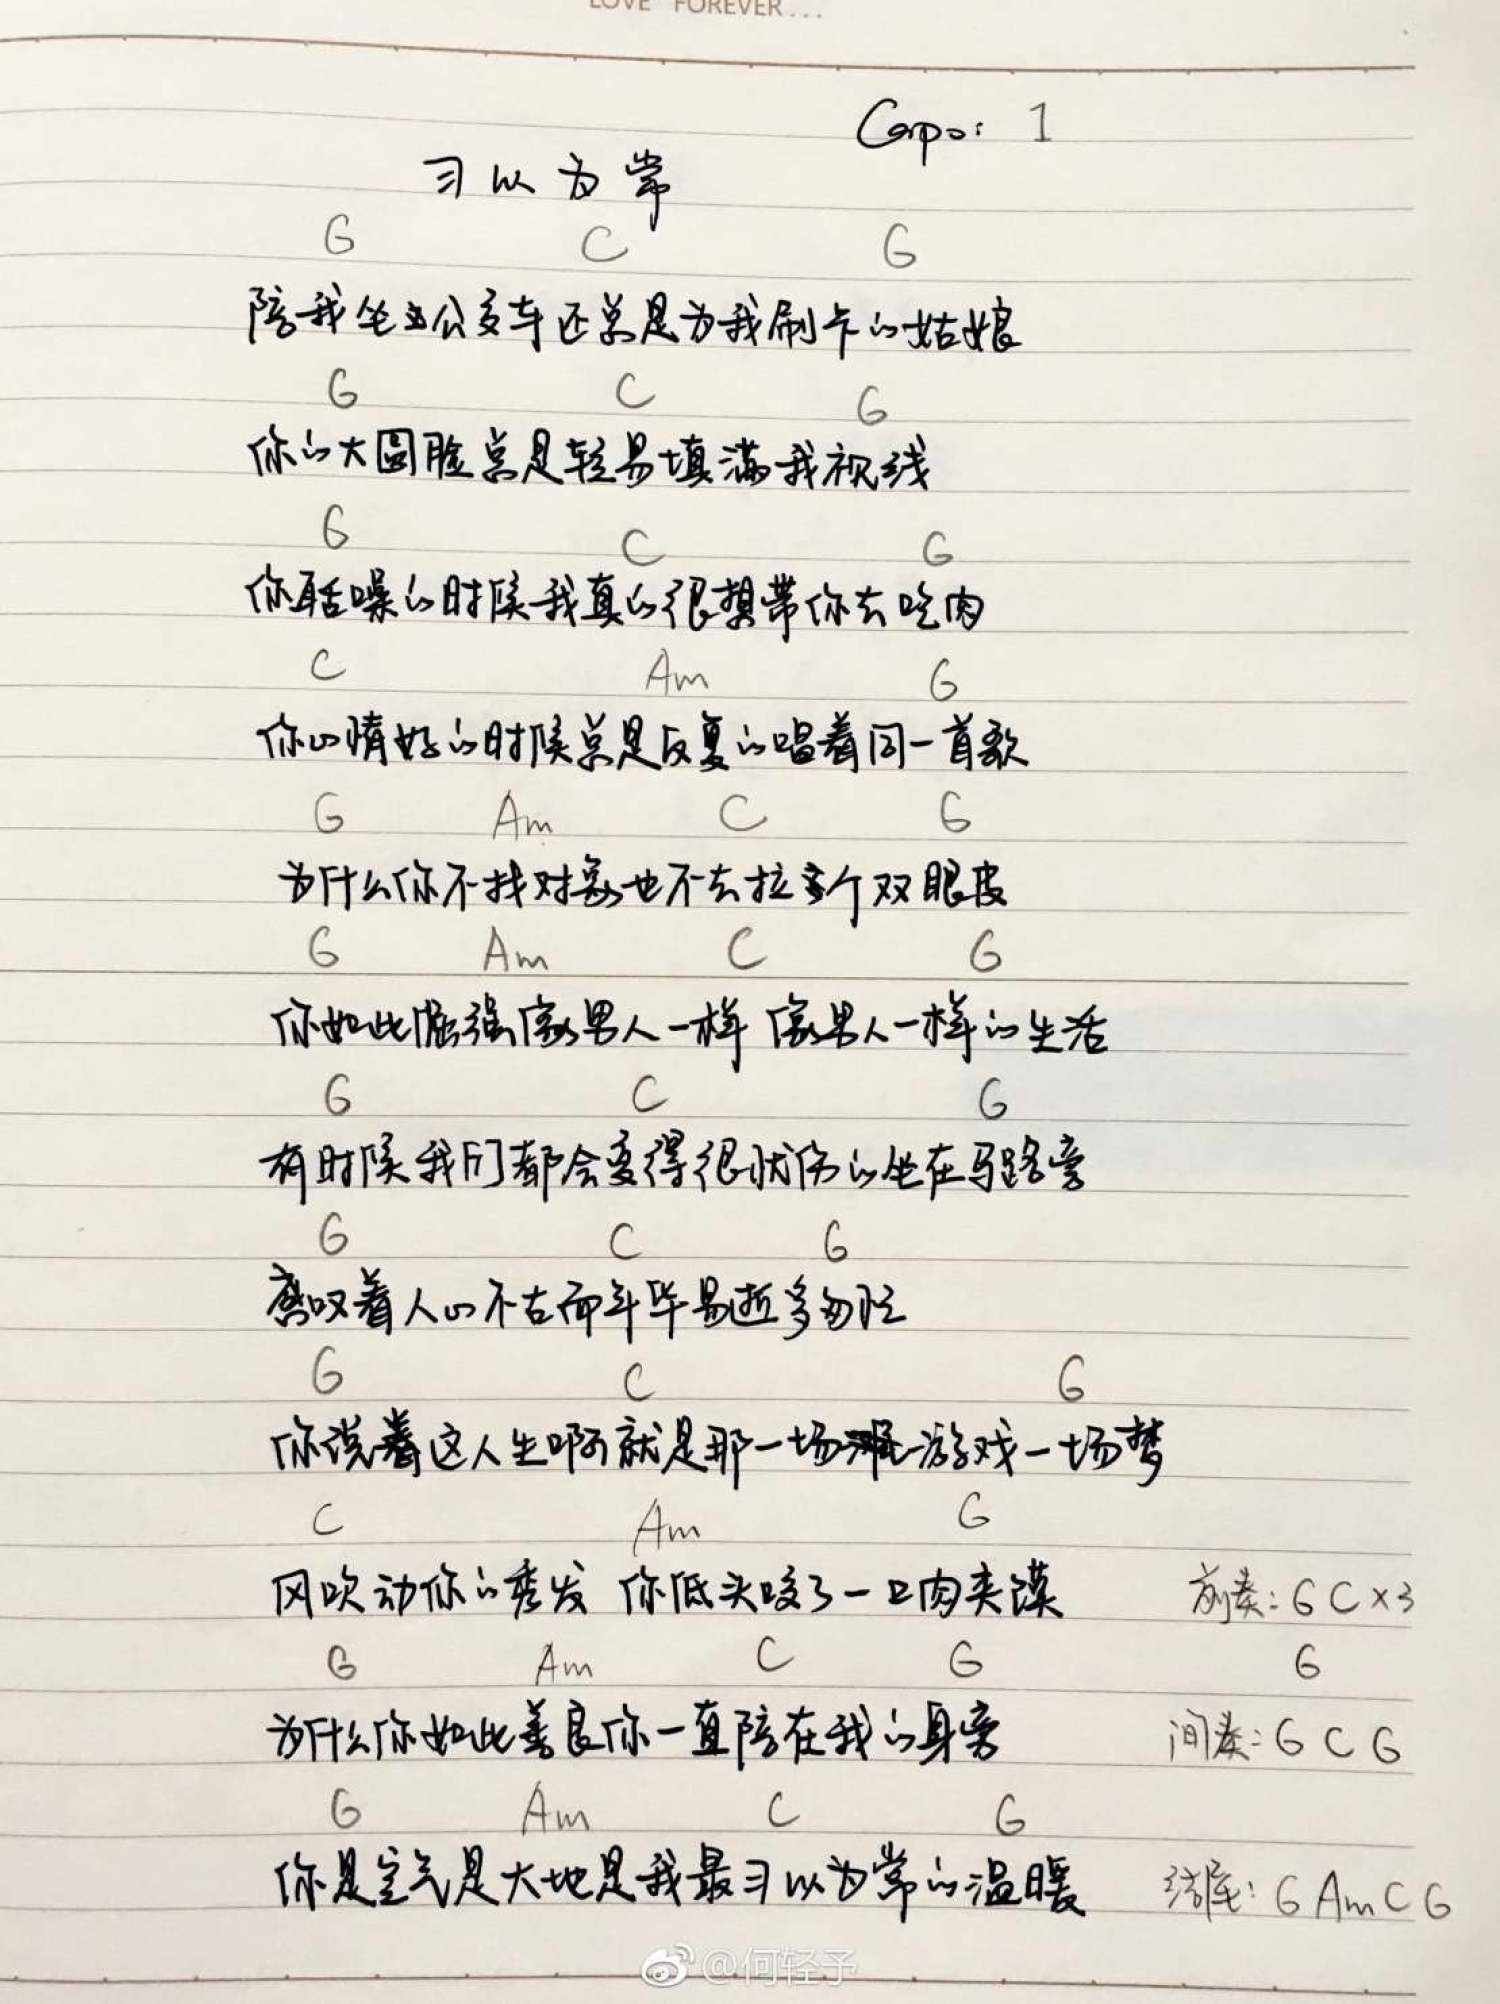 LOVE FOREVER...
Capo: 1
习以为常
G C G
陪我坐公交车还总是为我刷卡的姑娘
G C G
你的大圆脸总是轻易填满我视线
G C G
你聒噪的时候我真的很想带你去吃肉
C Am G
你心情好的时候总是反复的唱着同一首歌
G Am C G
为什么你不找对象也不去拉个双眼皮
G Am C G
你如此倔强像男人一样 像男人一样的生活
G C G
有时候我们都会变得很忧伤的坐在马路旁
G C G
感叹着人心不古而年华易逝多匆忙
G C G
你说着这人生啊就是那一场游戏一场梦
C Am G
风吹动你的秀发 你低头咬了一口肉夹馍 前奏: G C x3
G Am C G G
为什么你如此善良你一直陪在我的身旁 间奏: G C G
G Am C G
你是空气是大地是我最习以为常的温暖 结尾: G Am C G
@何轻予